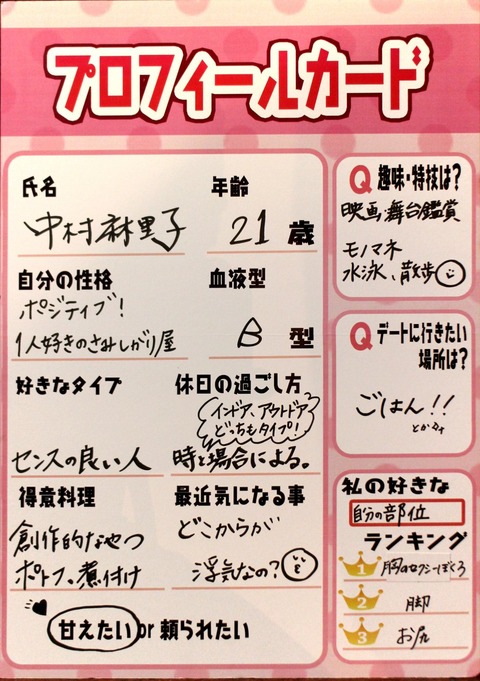 プロフィールカード
氏名
中村麻里子
年齢
21歳
自分の性格
ポジティブ!
1人好きのさみしがり屋
血液型
B型
好きなタイプ
センスの良い人
休日の過ごし方
インドア、アウトドア
どっちもタイプ!
時と場合による。
得意料理
創作的なやつ
ポトフ、煮付け
最近気になる事
どこからが
浮気なの?
甘えたい or 頼られたい
Q 趣味・特技は?
映画、舞台鑑賞
モノマネ
水泳、散歩
Q デートに行きたい
場所は?
ごはん!!
とかタイ
私の好きな
自分の部位
ランキング
1 胸のセクシーぼくろ
2 脚
3 お尻